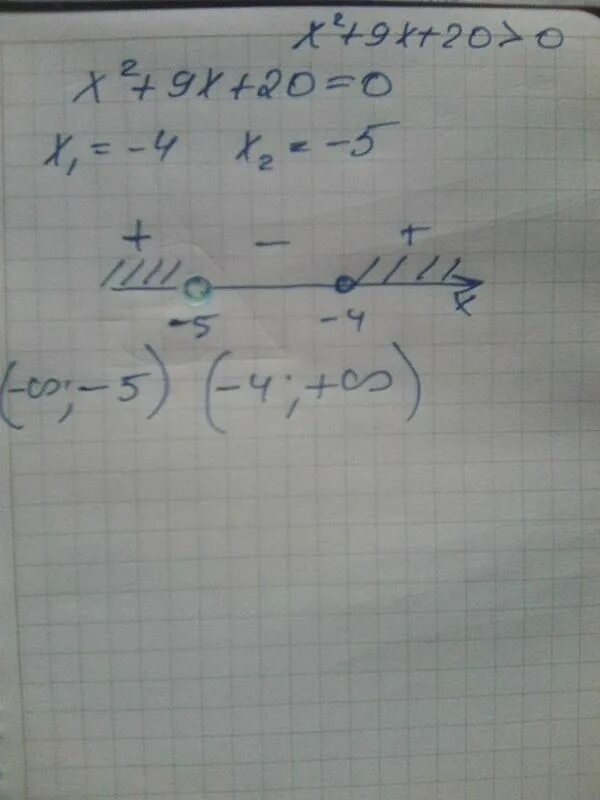 x²+9x+20>0
x²+9x+20=0
x₁=-4 x₂=-5
+ - +
-5 -4 x
(-∞;-5) (-4;+∞)